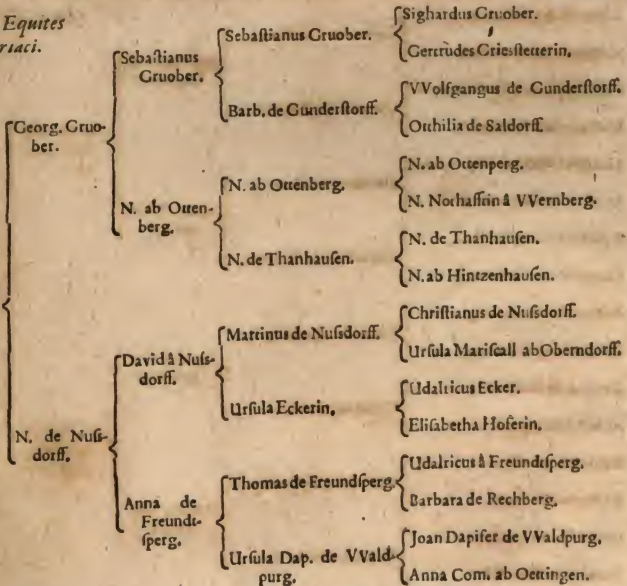 Equites
riaci.
Georg. Gruo-
ber.
N. de Nuſſ-
dorff.
Sebaſtianus
Gruober.
N. ab Otten-
berg.
David â Nuſs-
dorff.
Anna de
Freundt-
ſperg.
Sebaſtianus Gruober.
Barb. de Gunderſtorff.
N. ab Ottenberg.
N. de Thanhauſen.
Martinus de Nuſsdorff.
Urſula Eckerin.
Thomas de Freundtſperg.
Urſula Dap. de VVald-
purg.
Sighardus Gruober.
Gertrudes Griesſtetterin.
VVolfgangus de Gunderſtorff.
Otthilia de Saldorff.
N. ab Ottenperg.
N. Nothafftin â VVernberg.
N. de Thanhauſen.
N. ab Hintzenhauſen.
Chriſtianus de Nuſsdorff.
Urſula Mariſcall ab Oberndorff.
Udalricus Ecker.
Eliſabetha Hoferin.
Udalricus â Freundtſperg.
Barbara de Rechberg.
Joan Dapifer de VValdpurg.
Anna Com. ab Oettingen.